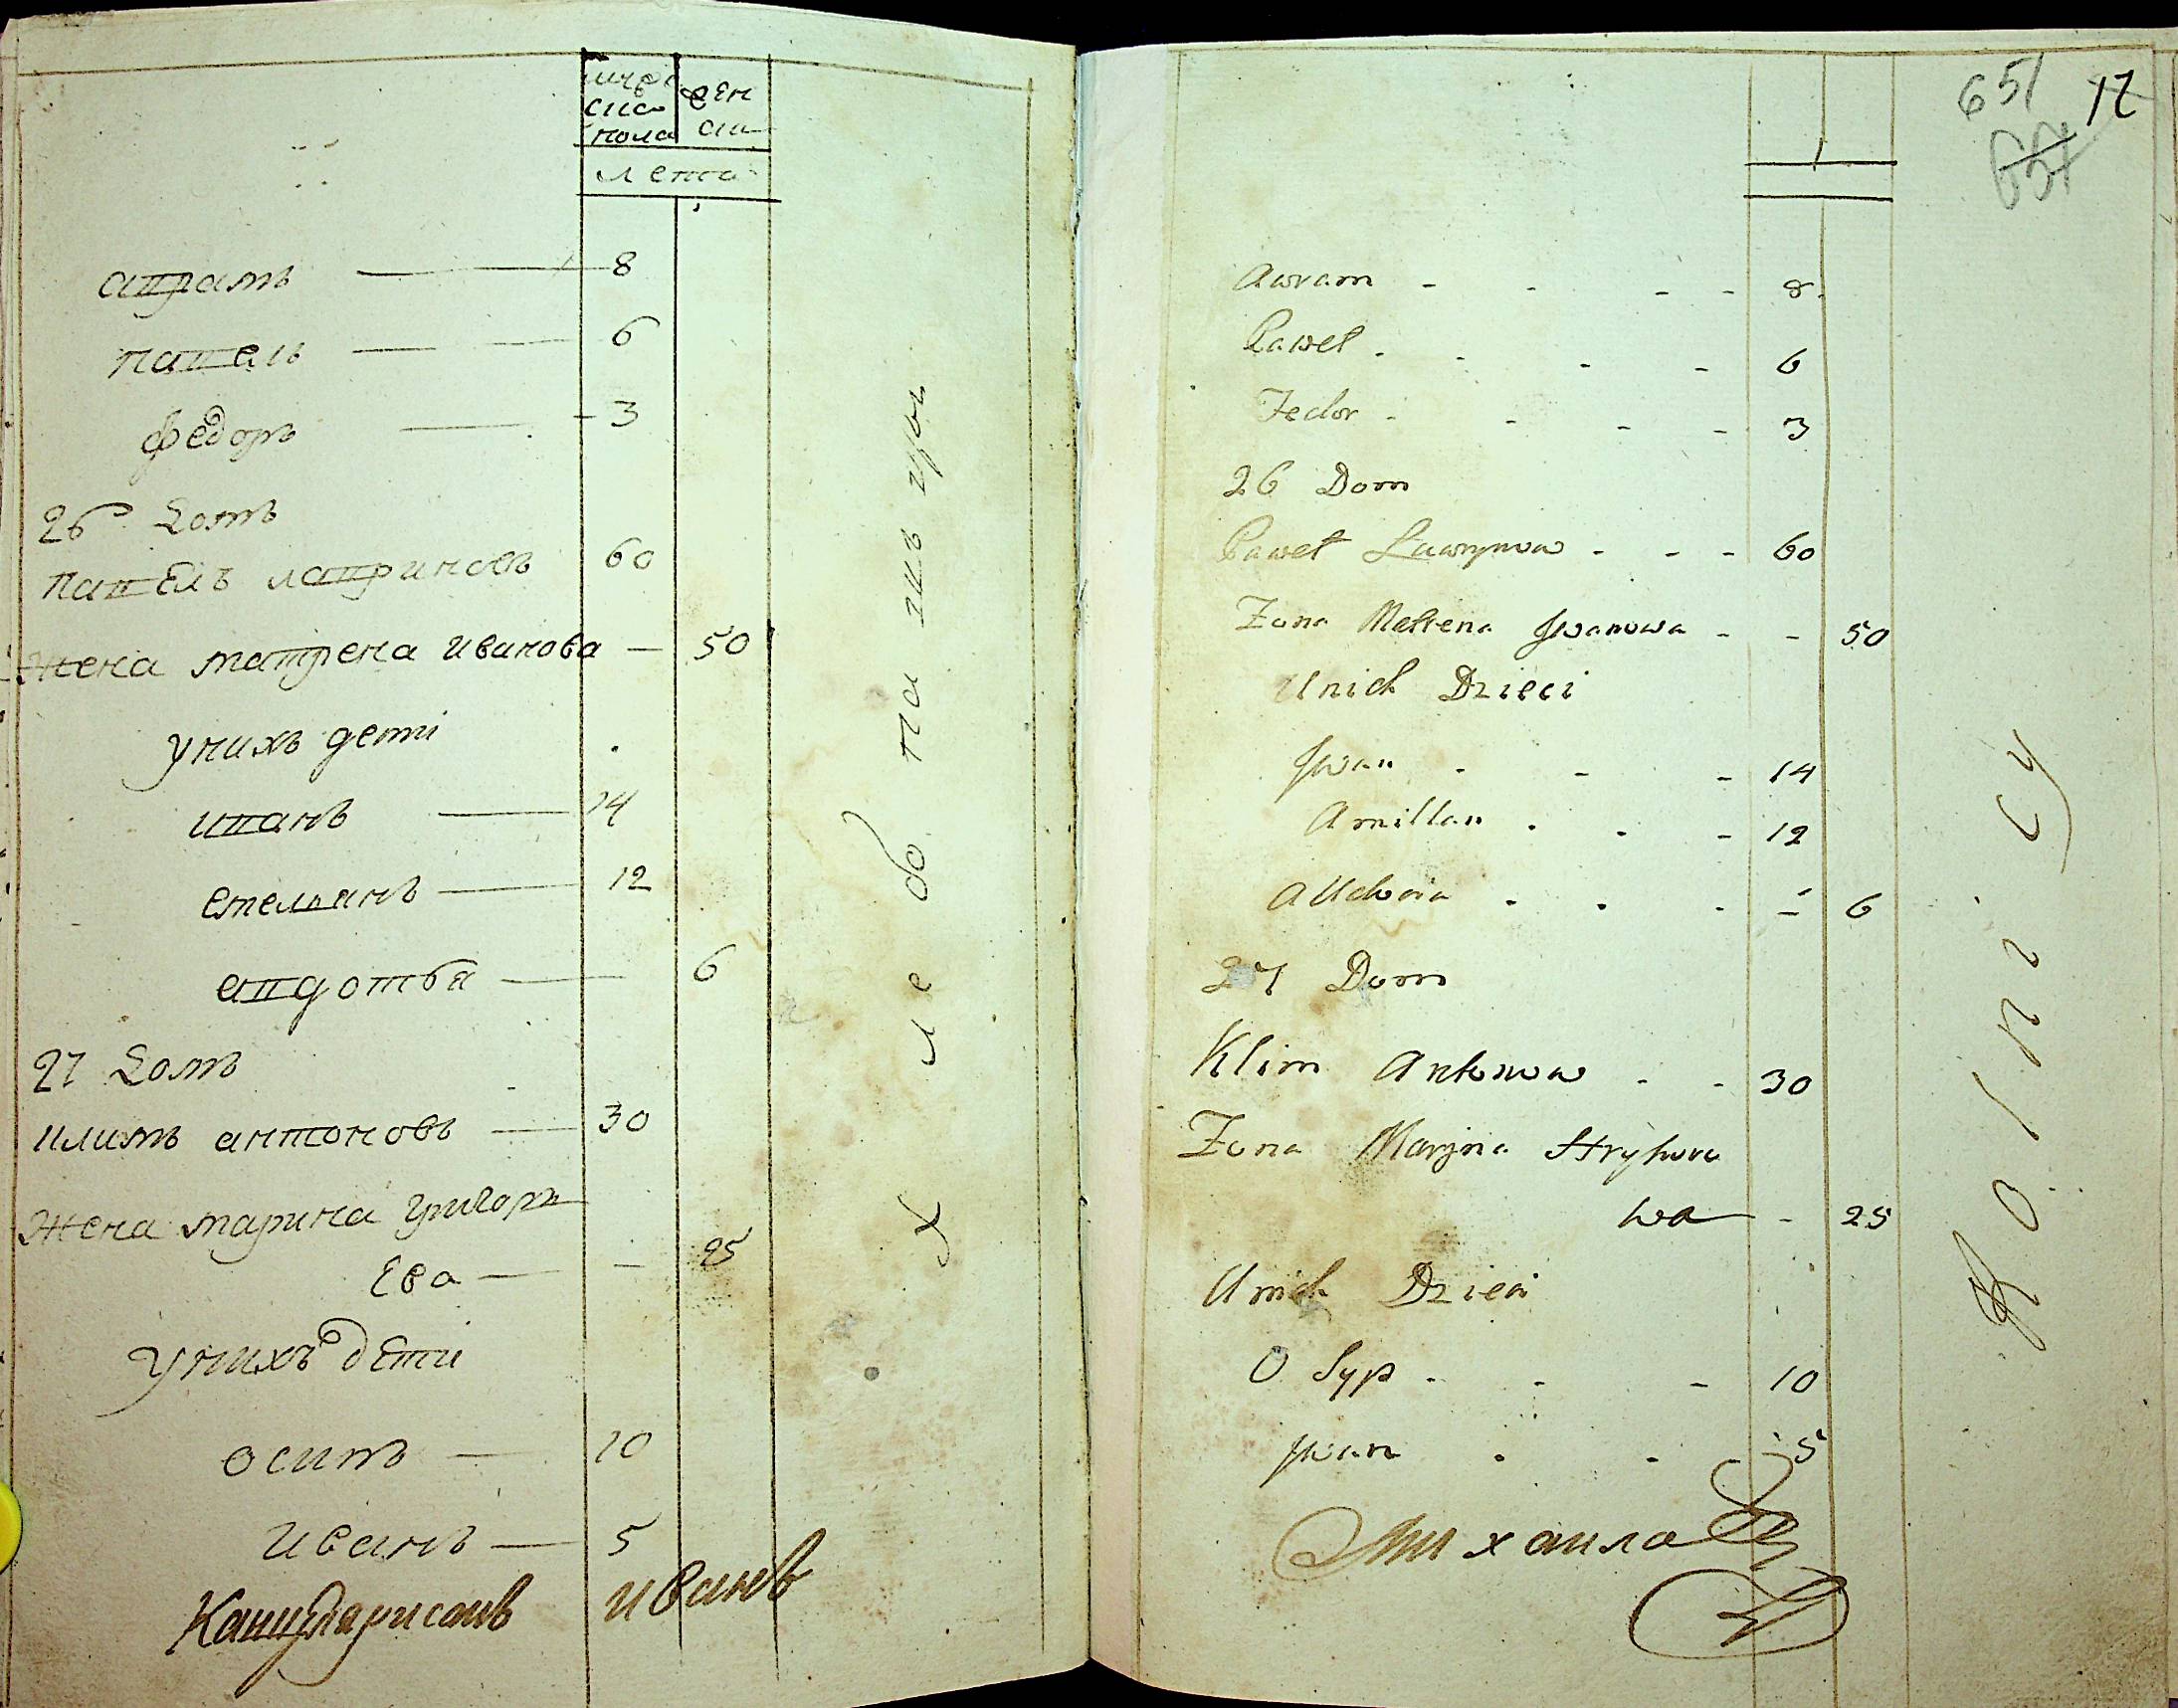 пола
лета
аврамъ — 8
павелъ — 6
федоръ — 3
26 домъ
павелъ лавриновъ 60
жена матрена иванова — 50
унихъ дети
иванъ — 14
емельянъ — 12
авдотья — 6
27 домъ
климъ антоновъ — 30
жена марина григорь
ева — 25
унихъ дети
осипъ — 10
иванъ — 5
Канцеляристъ иванъ
хлебопашцы
651 12
Awram - - - - 8
Pawel - - - - 6
Fedor - - - - 3
26 Dom
Paweł Lawrynow - - - 60
Zona Metrena Jwanowa - - 50
Unich Dzieci
Jwan - - - 14
Amillan - - - 12
Audwia - - - - 6
27 Dom
Klim Antonow - - 30
Zona Maryna Hryhore
wa - 25
Unich Dzieci
O Syp - - - 10
Jwan - - - 5
Михаила
Rolnicy